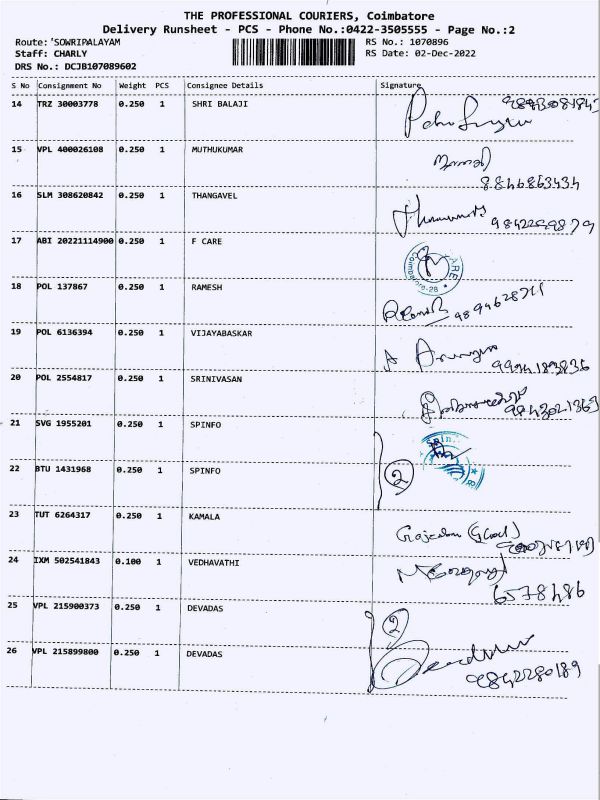 THE PROFESSIONAL COURIERS, Coimbatore
Delivery Runsheet - PCS - Phone No.:0422-3505555 - Page No.:2
Route: 'SOWRIPALAYAM RS No.: 1070896
Staff: CHARLY RS Date: 02-Dec-2022
DRS No.: DCJB107089602
S No Consignment No Weight PCS Consignee Details Signature
14 TRZ 30003778 0.250 1 SHRI BALAJI
15 VPL 400026108 0.250 1 MUTHUKUMAR
8846863434
16 SLM 308620842 0.250 1 THANGAVEL
9842299879
17 ABI 20221114900 0.250 1 F CARE
18 POL 137867 0.250 1 RAMESH
9894628711
19 POL 6136394 0.250 1 VIJAYABASKAR
9994183836
20 POL 2554817 0.250 1 SRINIVASAN
9843021363
21 SVG 1955201 0.250 1 SPINFO
22 BTU 1431968 0.250 1 SPINFO
2
23 TUT 6264317 0.250 1 KAMALA
24 IXM 502541843 0.100 1 VEDHAVATHI
6578486
25 VPL 215900373 0.250 1 DEVADAS
2
26 VPL 215899800 0.250 1 DEVADAS
9842280189